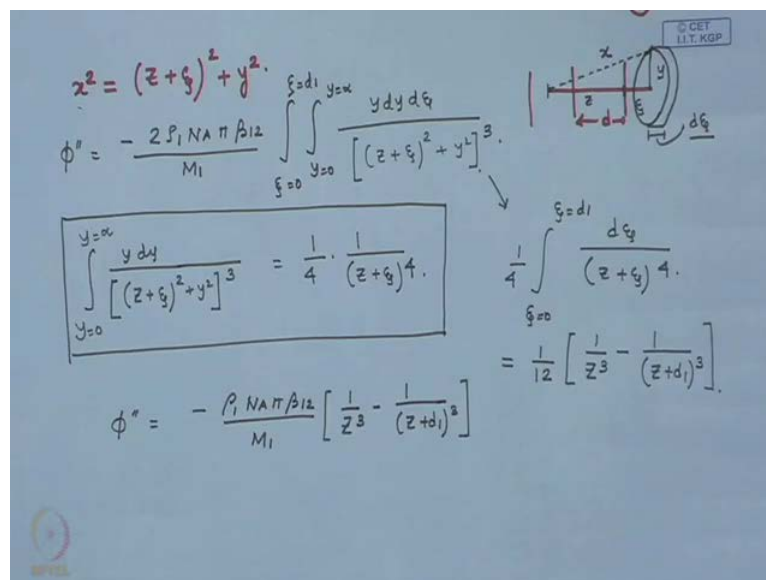 © CET
I.I.T. KGP
x² = (z+ξ)² + y².
x
y
z
ξ
d
dξ
φ" = - 2 ρ₁ N_A π β₁₂ / M₁ ∫_{ξ=0}^{ξ=d₁} ∫_{y=0}^{y=α} y dy dξ / [(z+ξ)² + y²]³.
∫_{y=0}^{y=α} y dy / [(z+ξ)² + y²]³ = 1/4 · 1/(z+ξ)⁴.
1/4 ∫_{ξ=0}^{ξ=d₁} dξ / (z+ξ)⁴.
= 1/12 [ 1/z³ - 1/(z+d₁)³ ].
φ" = - ρ₁ N_A π β₁₂ / M₁ [ 1/z³ - 1/(z+d₁)³ ]
NPTEL